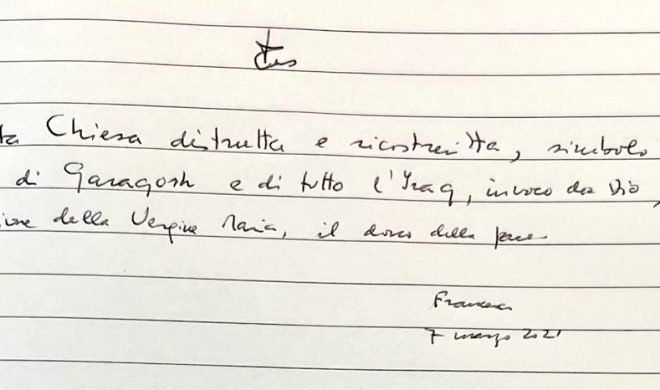 ta Chiesa distrutta e ricostruita, simbolo
di Qaragosh e di tutto l'Iraq, invoco da Dio,
ione della Vergine Maria, il dono della pace
Franciscus
7 marzo 2021